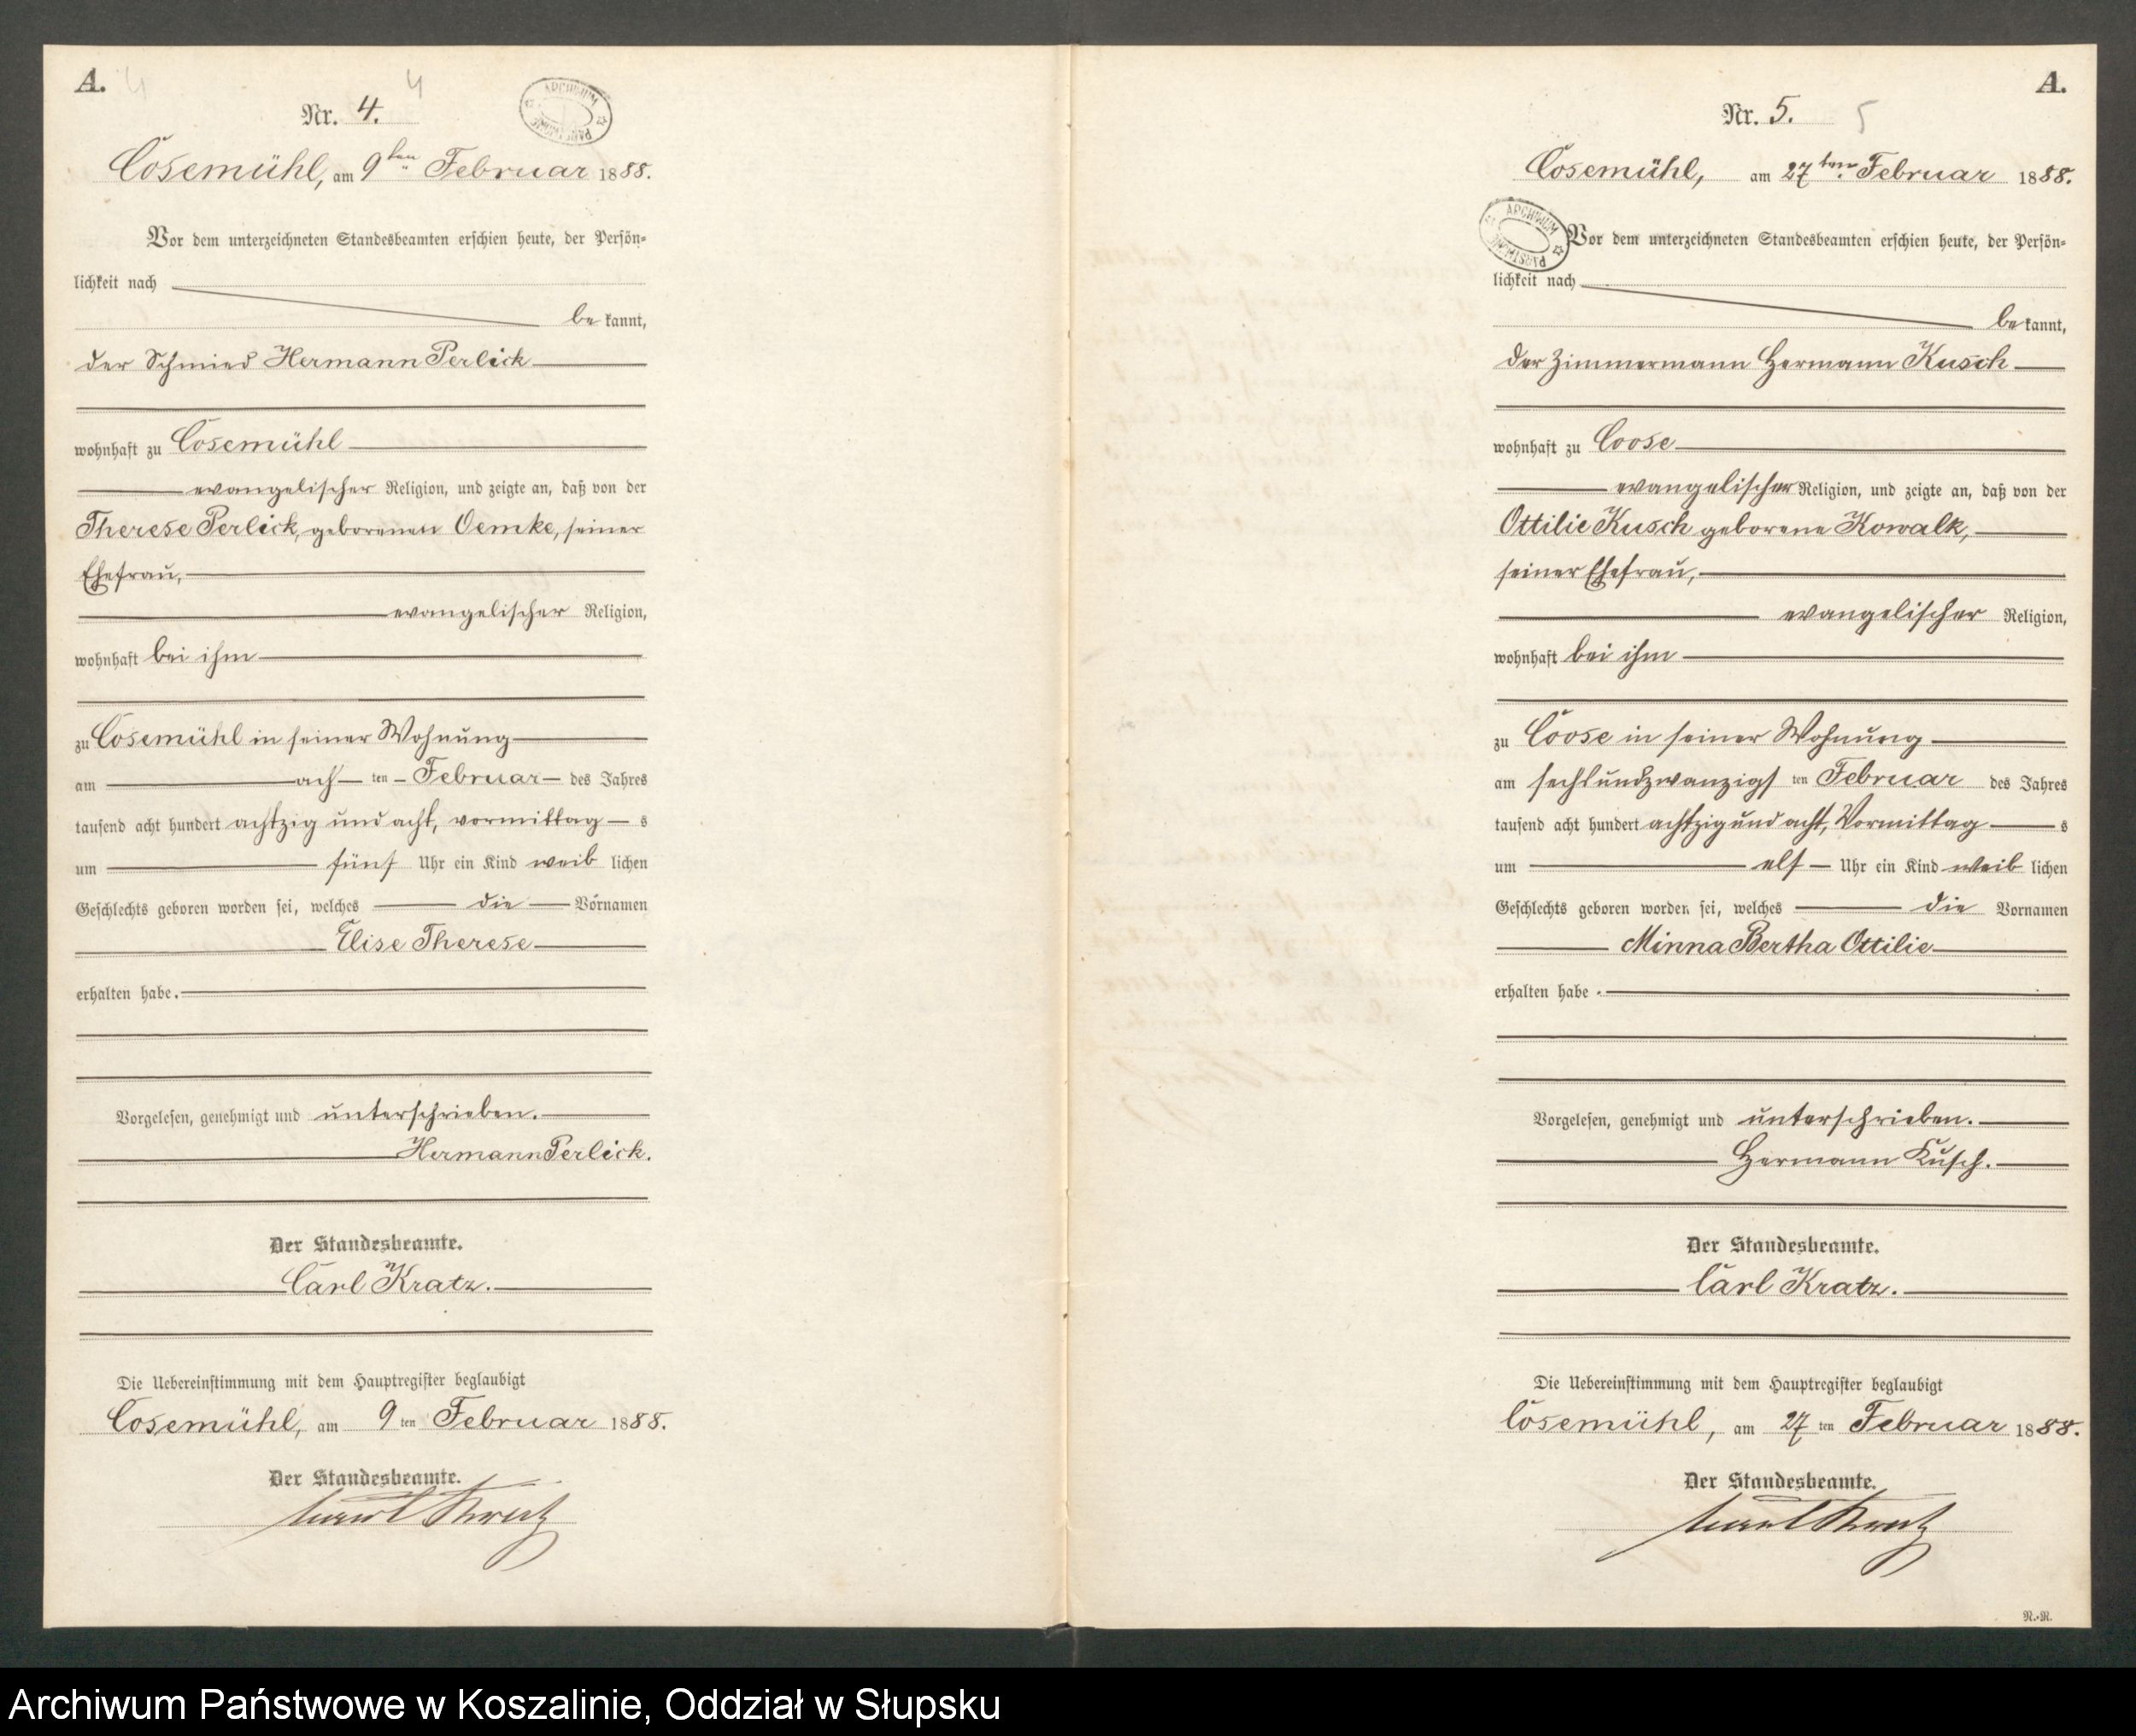 A.
4
4
Nr. 4.
ARCHIWUM PAŃSTWOWE
Cosemühl, am 9ten Februar 1888.
Vor dem unterzeichneten Standesbeamten erschien heute, der Persön-
lichkeit nach
bekannt,
der Schmied Hermann Perlick
wohnhaft zu Cosemühl
evangelischer Religion, und zeigte an, daß von der
Therese Perlick, geborenen Oemke, seiner
Ehefrau,
evangelischer Religion,
wohnhaft bei ihm
zu Cosemühl in seiner Wohnung
am ach ten Februar des Jahres
tausend acht hundert achtzig und acht, vormittag s
um fünf Uhr ein Kind weiblichen
Geschlechts geboren worden sei, welches die Vornamen
Elise Therese
erhalten habe.
Vorgelesen, genehmigt und unterschrieben.
Hermann Perlick.
Der Standesbeamte.
Carl Kratz.
Die Uebereinstimmung mit dem Hauptregister beglaubigt
Cosemühl, am 9ten Februar 1888.
Der Standesbeamte.
Carl Kratz
A.
Nr. 5.
5
Cosemühl, am 27ten Februar 1888.
ARCHIWUM PAŃSTWOWE
Vor dem unterzeichneten Standesbeamten erschien heute, der Persön-
lichkeit nach
bekannt,
der Zimmermann Hermann Kusch
wohnhaft zu Coose
evangelischer Religion, und zeigte an, daß von der
Ottilie Kusch geborene Kowalk,
seiner Ehefrau,
evangelischer Religion,
wohnhaft bei ihm
zu Coose in seiner Wohnung
am sechsundzwanzigsten Februar des Jahres
tausend acht hundert achtzig und acht, Vormittag s
um elf Uhr ein Kind weiblichen
Geschlechts geboren worden sei, welches die Vornamen
Minna Bertha Ottilie
erhalten habe.
Vorgelesen, genehmigt und unterschrieben.
Hermann Kusch.
Der Standesbeamte.
Carl Kratz.
Die Uebereinstimmung mit dem Hauptregister beglaubigt
Cosemühl, am 27ten Februar 1888.
Der Standesbeamte.
Carl Kratz
N.-N.
Archiwum Państwowe w Koszalinie, Oddział w Słupsku